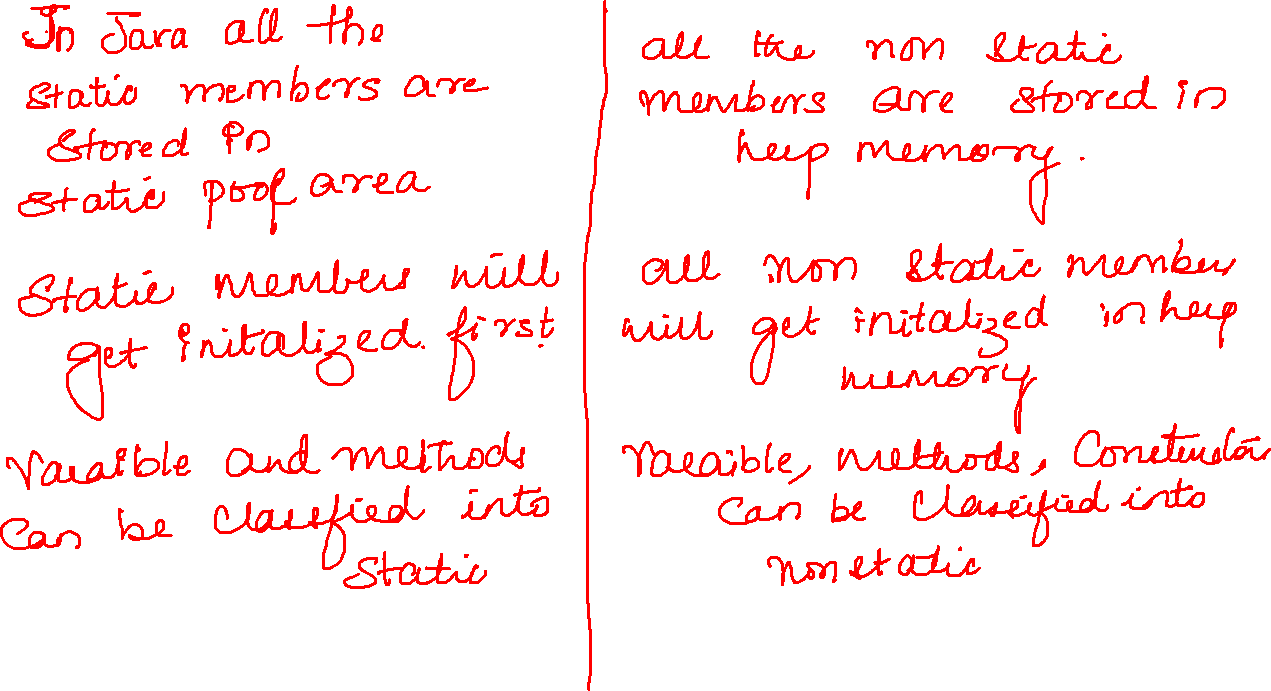 In Java all the
static members are
stored in
static pool area
Static members will
get initalized. first
Varaible and methods
can be classfied into
static
all the non static
members are stored in
heep memory.
all non static member
will get initalized in heep
memory
Varaible, methods, Constructor
can be classified into
non static